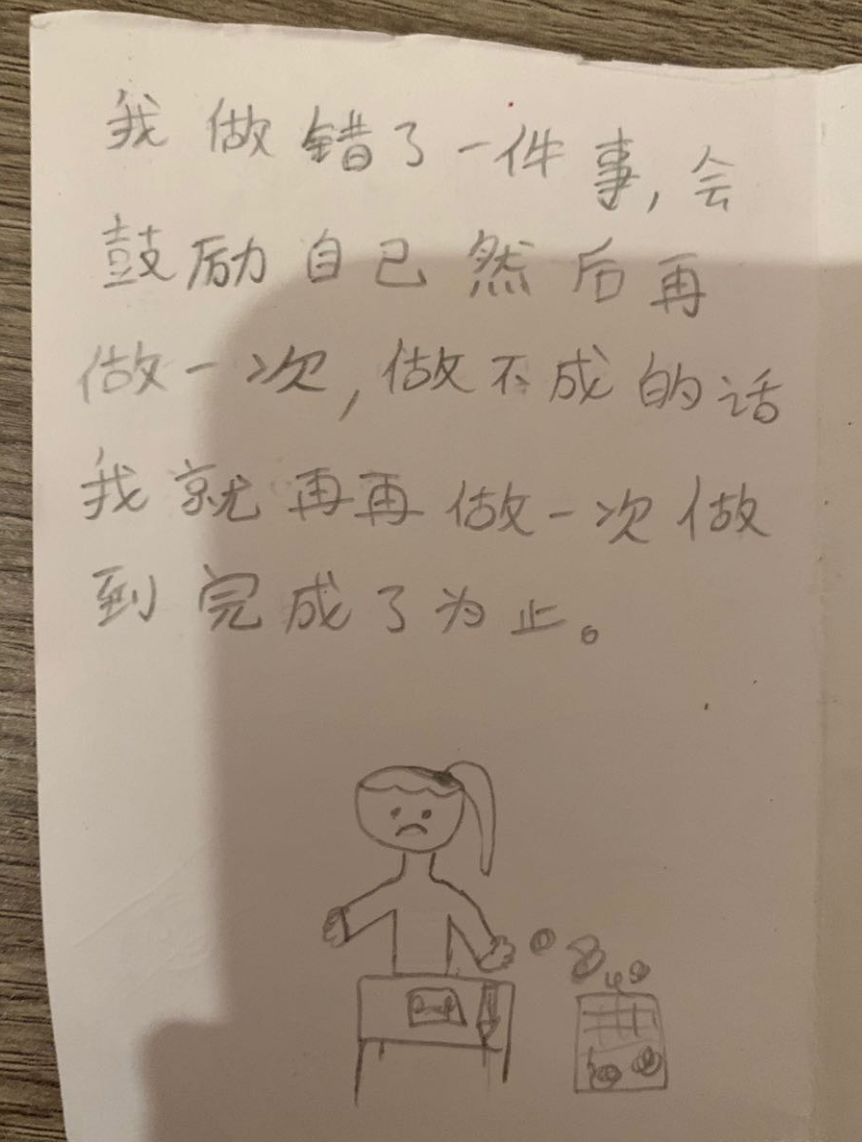 我做错了一件事,会
鼓励自己然后再
做一次,做不成的话
我就再再做一次做
到完成了为止。